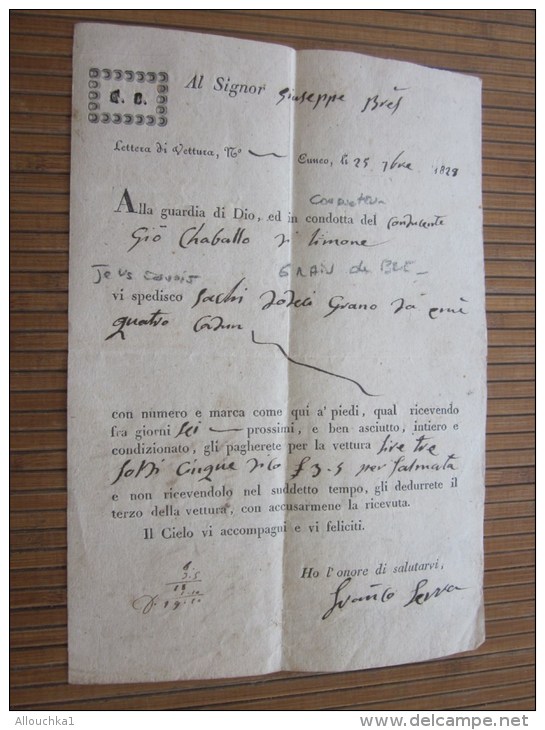 C. C.
Al Signor Giuseppe Brés
Lettera di Vettura, N.º Cuneo, li 25 7bre 1828
Conducteur
Alla guardia di Dio, ed in condotta del Conducente
Giō Chaballo di Limone
Je vs envois GRAIN de BLE
vi spedisco Sachi dodeci Grano da emine
quatro Cadun
con numero e marca come qui a' piedi, qual ricevendo
fra giorni sei prossimi, e ben asciutto, intiero e
condizionato, gli pagherete per la vettura lire tre
soldi Cinque dico £ 3.5 per Salmata
e non ricevendolo nel suddetto tempo, gli dedurrete il
terzo della vettura, con accusarmene la ricevuta.
Il Cielo vi accompagni e vi feliciti.
Ho l'onore di salutarvi,
6.
3.5
18
1.10
19.10
© Allouchka1
http://www.delcampe.net